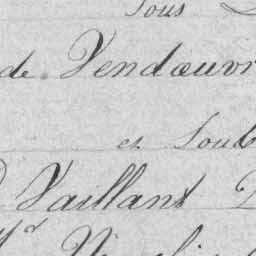 Sous
de Vendœuvr
et Soub
Vaillant